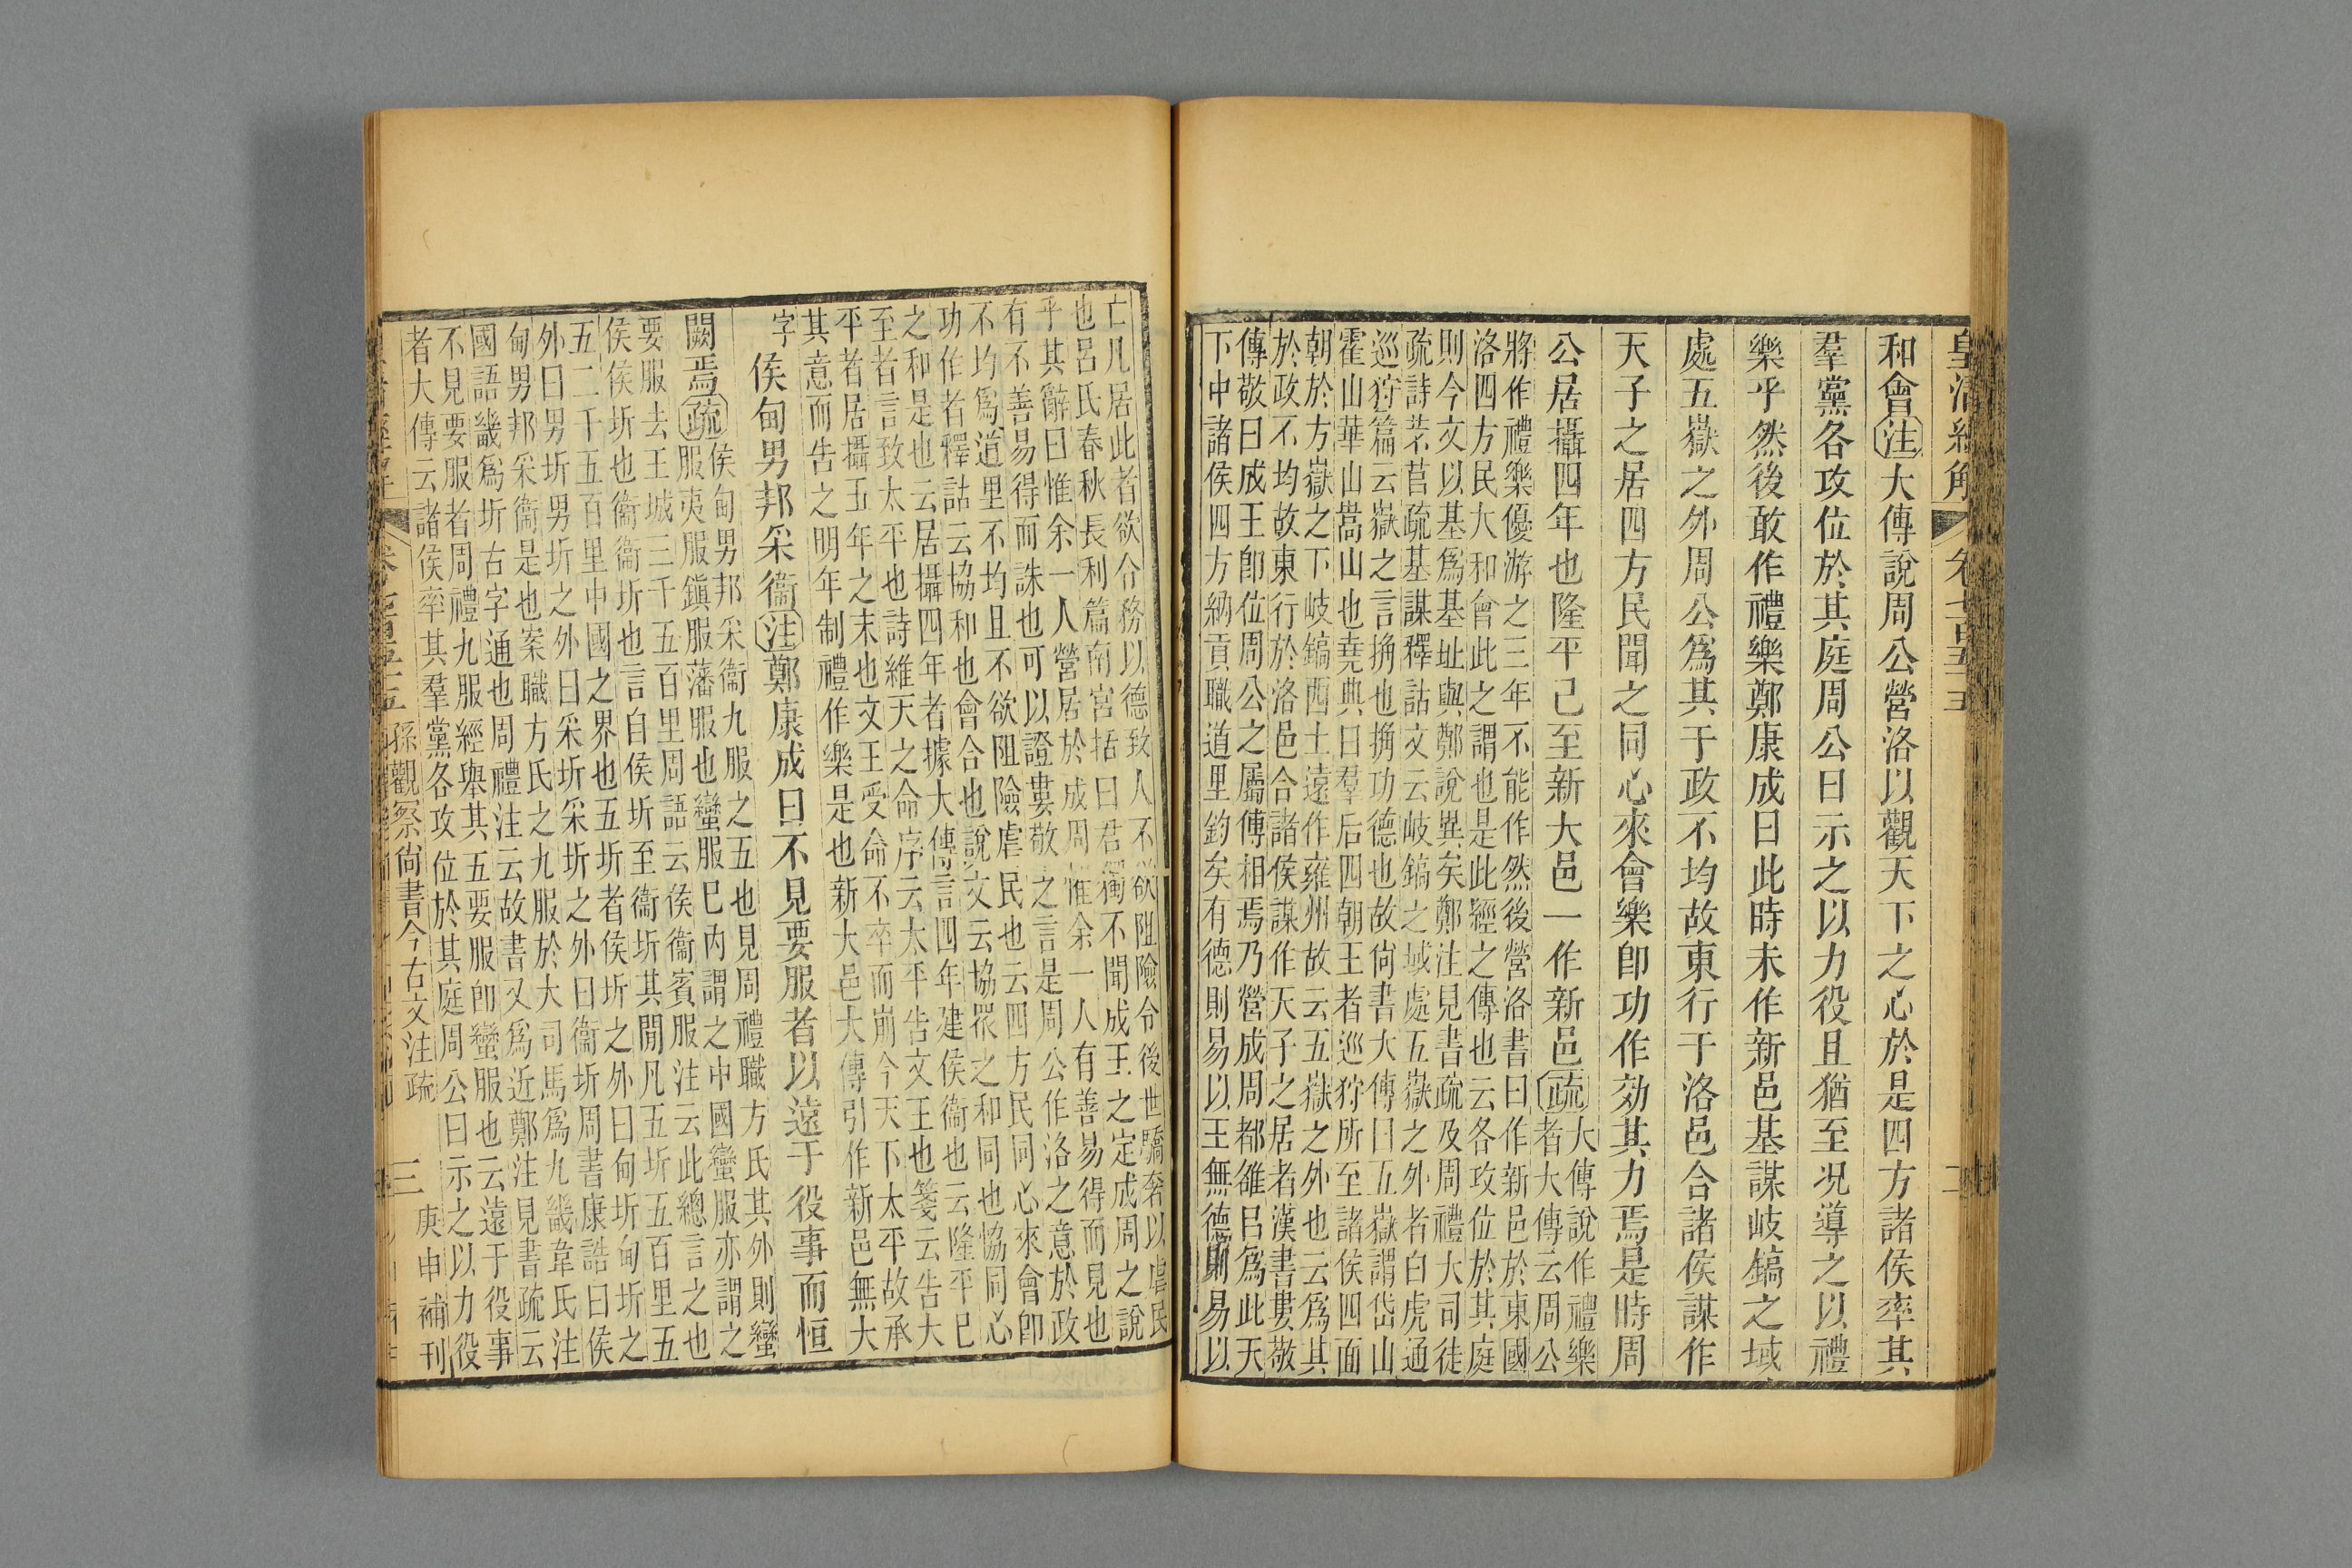 皇清經解 卷七百五十五 二
和會注大傳說周公營洛以觀天下之心於是四方諸侯率其
羣黨各攻位於其庭周公曰示之以力役且猶至況導之以禮
樂乎然後敢作禮樂鄭康成曰此時未作新邑基謀岐鎬之域
處五嶽之外周公爲其于政不均故東行于洛邑合諸侯謀作
天子之居四方民聞之同心來會樂卽功作効其力焉是時周
公居攝四年也隆平已至新大邑一作新邑疏
大傳說作禮樂
者大傳云周公
將作禮樂優游之三年不能作然後營洛書曰作新邑於東國
洛四方民大和會此之謂也是此經之傳也云各攻位於其庭
則今文以基爲基址與鄭說異矣鄭注見書疏及周禮大司徒
疏詩芣苢疏基謀釋詁文云岐鎬之域處五嶽之外者白虎通
巡狩篇云嶽之言捔也捔功德也故尙書大傳曰五嶽謂岱山
霍山華山嵩山也堯典曰羣后四朝王者巡狩所至諸侯四面
朝於方嶽之下岐鎬西土遠作雍州故云五嶽之外也云爲其
於政不均故東行於洛邑合諸侯謀作天子之居者漢書婁敬
傳敬曰成王卽位周公之屬傅相焉乃營成周都雒以爲此天
下中諸侯四方納貢職道里鈞矣有德則易以王無德則易以
亡凡居此者欲合務以德致人不欲阻險令後世驕奢以虐民
也呂氏春秋長利篇南宮括曰君獨不聞成王之定成周之說
乎其辭曰惟余一人營居於成周惟余一人有善易得而見也
有不善易得而誅也可以證婁敬之言是周公作洛之意於政
不均爲道里不均且不欲阻險虐民也云四方民同心來會卽
功作者釋詁云協和也會合也說文云協眾之和同也協同心
之和是也云居攝四年者據大傳言四年建侯衞也云隆平已
至者言致太平也詩維天之命序云太平告文王也箋云告大
平者居攝五年之末也文王受命不卒而崩今天下太平故承
其意而告之明年制禮作樂是也新大邑大傳引作新邑無大
字
侯甸男邦采衞注鄭康成曰不見要服者以遠于役事而恒
闕焉疏
侯甸男邦采衞九服之五也見周禮職方氏其外則蠻
服夷服鎭服藩服也蠻服已內謂之中國蠻服亦謂之
要服去王城三千五百里周語云侯衞賓服注云此總言之也
侯侯圻也衞衞圻也言自侯圻至衞圻其閒凡五圻五百里五
五二千五百里中國之界也五圻者侯圻之外曰甸圻甸圻之
外曰男圻男圻之外曰采圻采圻之外曰衞圻周書康誥曰侯
甸男邦采衞是也案職方氏之九服於大司馬爲九畿韋氏注
國語畿爲圻古字通也周禮注云故書又爲近鄭注見書疏云
不見要服者周禮九服經舉其五要服卽蠻服也云遠于役事
者大傳云諸侯率其羣黨各攻位於其庭周公曰示之以力役
孫觀察尙書今古文注疏 三 庚申補刊